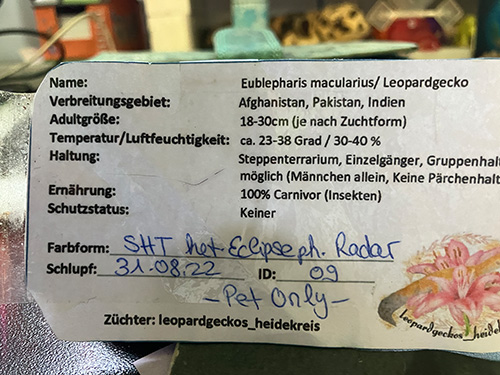 Name: Eublepharis macularius/ Leopardgecko
Verbreitungsgebiet: Afghanistan, Pakistan, Indien
Adultgröße: 18-30cm (je nach Zuchtform)
Temperatur/Luftfeuchtigkeit: ca. 23-38 Grad / 30-40 %
Haltung: Steppenterrarium, Einzelgänger, Gruppenhalt
möglich (Männchen allein, Keine Pärchenhalt
Ernährung: 100% Carnivor (Insekten)
Schutzstatus: Keiner
Farbform: SHT het. Eclipse ph. Radar
Schlupf: 31.08.22 ID: 09
- Pet Only -
Züchter: leopardgeckos_heidekreis
leopardgeckos_heidek